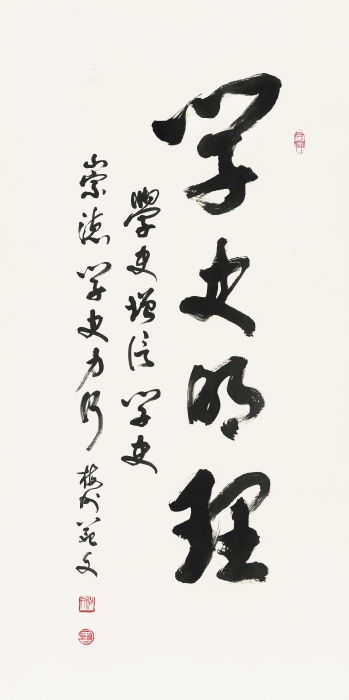 学史明理
學史增信学史
崇德学史力行 梅州范文